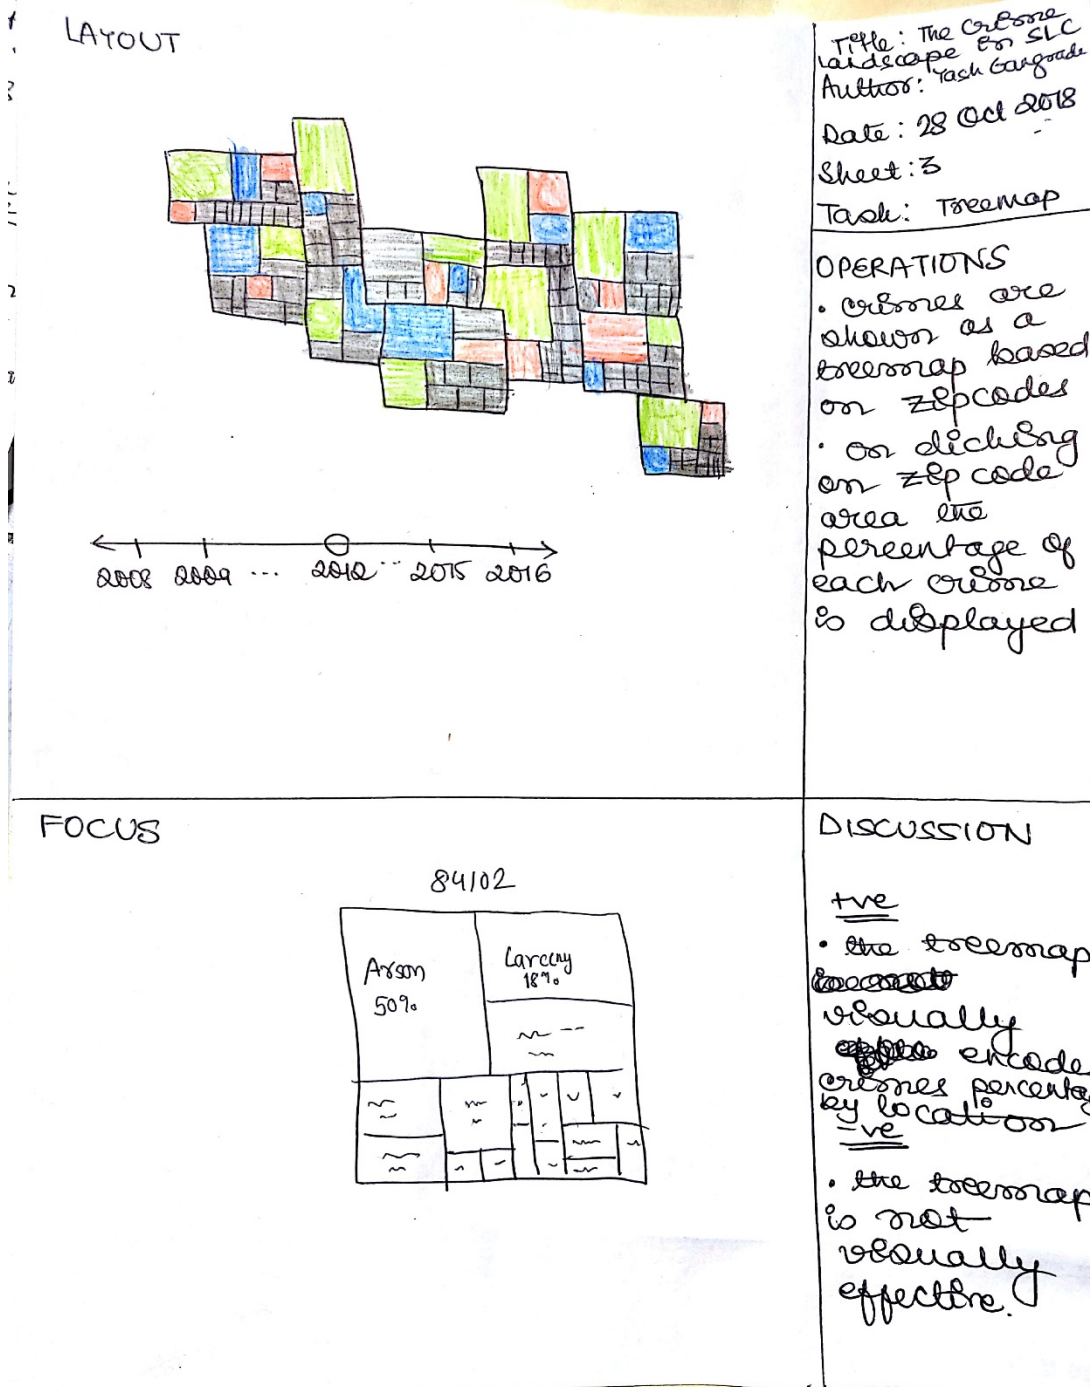 LAYOUT
2008 2009 ... 2012 ... 2015 2016
Title: The Crime
landscape in SLC
Author: Yash Gangrade
Date: 28 Oct 2018
Sheet: 3
Task: Treemap
OPERATIONS
• crimes are
shown as a
treemap based
on zipcodes
• on clicking
on zip code
area the
percentage of
each crime
is displayed
FOCUS
84102
Arson
50%
Larceny
18%
DISCUSSION
+ve
• the treemap
visually
encode
crimes percentag
by location
-ve
• the treemap
is not
visually
effective.